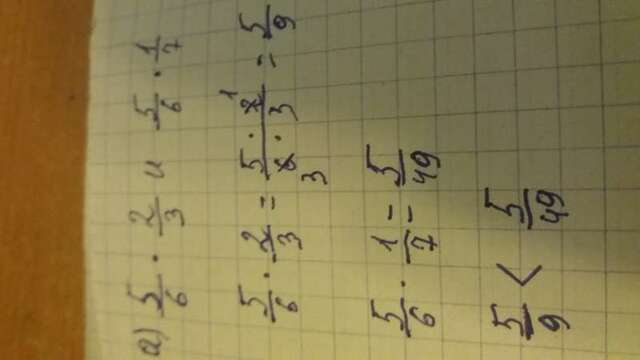 а) 5/6 · 2/3 и 5/6 · 1/7
5/6 · 2/3 = 5 · 2 1/6 · 3 3 = 5/9
5/6 · 1/7 = 5/49
5/9 < 5/49